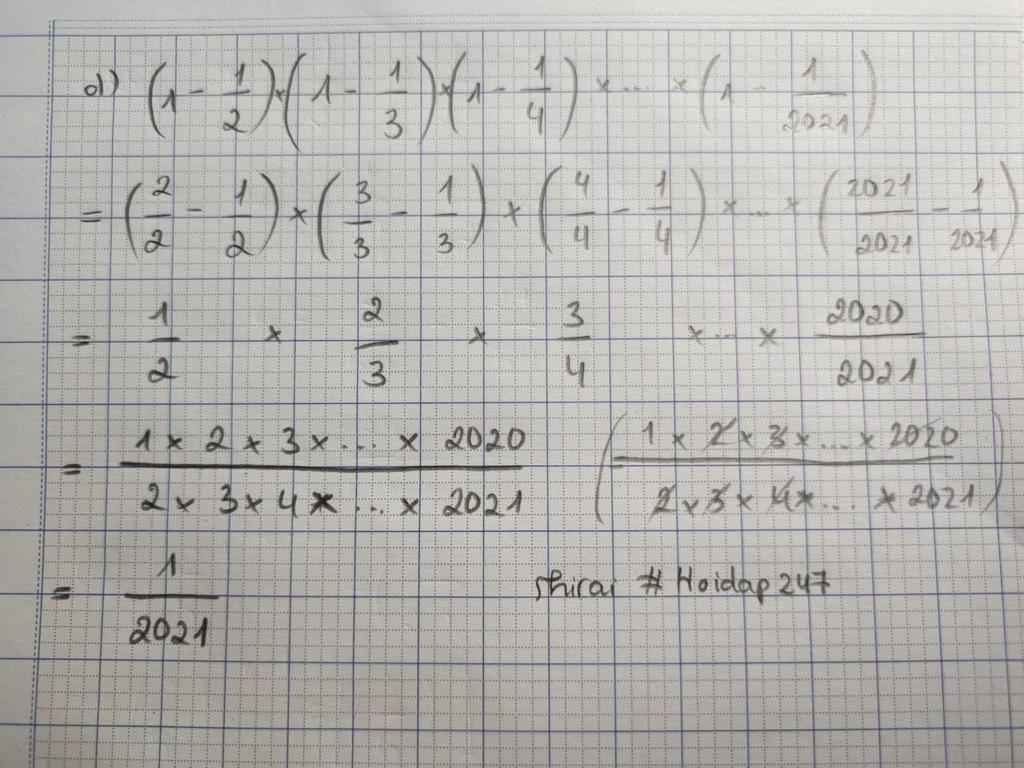 d) (1 - 1/2) × (1 - 1/3) × (1 - 1/4) × ... × (1 - 1/2021)
= (2/2 - 1/2) × (3/3 - 1/3) × (4/4 - 1/4) × ... × (2021/2021 - 1/2021)
= 1/2 × 2/3 × 3/4 × ... × 2020/2021
= (1 × 2 × 3 × ... × 2020)/(2 × 3 × 4 × ... × 2021) ((1 × 2 × 3 × ... × 2020)/(2 × 3 × 4 × ... × 2021))
= 1/2021
shirai # Hoidap247